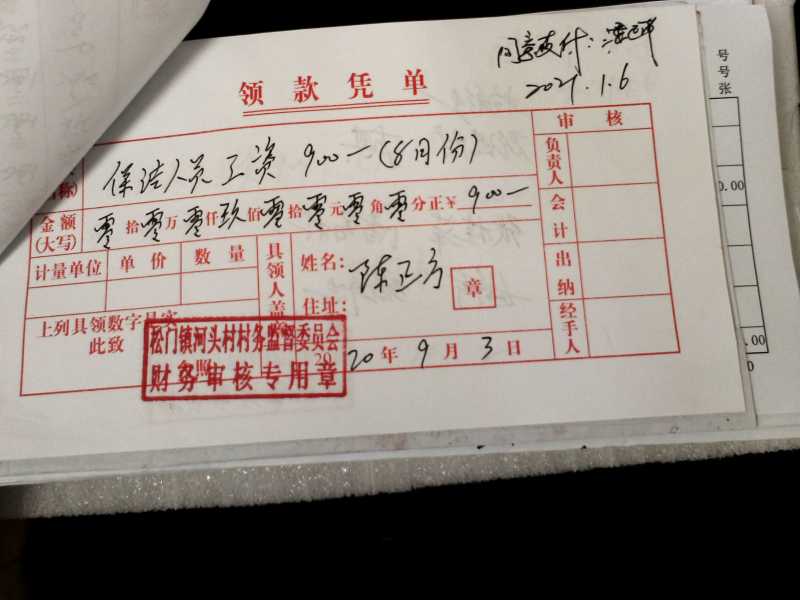 同意支付:
2021.1.6
领款凭单
号
号
张
保洁人员工资 900一(8月份)
称)
金额(大写) 零拾零万零仟玖佰零拾零元零角零分正¥ 900一
计量单位 单价 数量
具领人盖
姓名: 陈正方
章
住址:
上列具领数字
此致
松门镇河头村村务监督委员会
财务审核专用章
2020年9月3日
审核
负责人
会计
出纳
经手人
0.00
.00